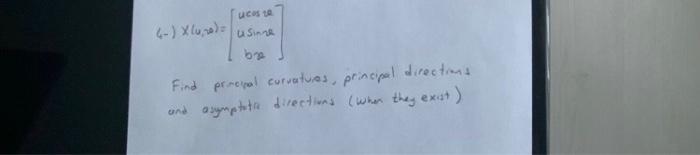 u cos v
4-) X(u,v) = u sin v
bv
Find principal curvatures, principal directions
and asymptotic directions (when they exist)